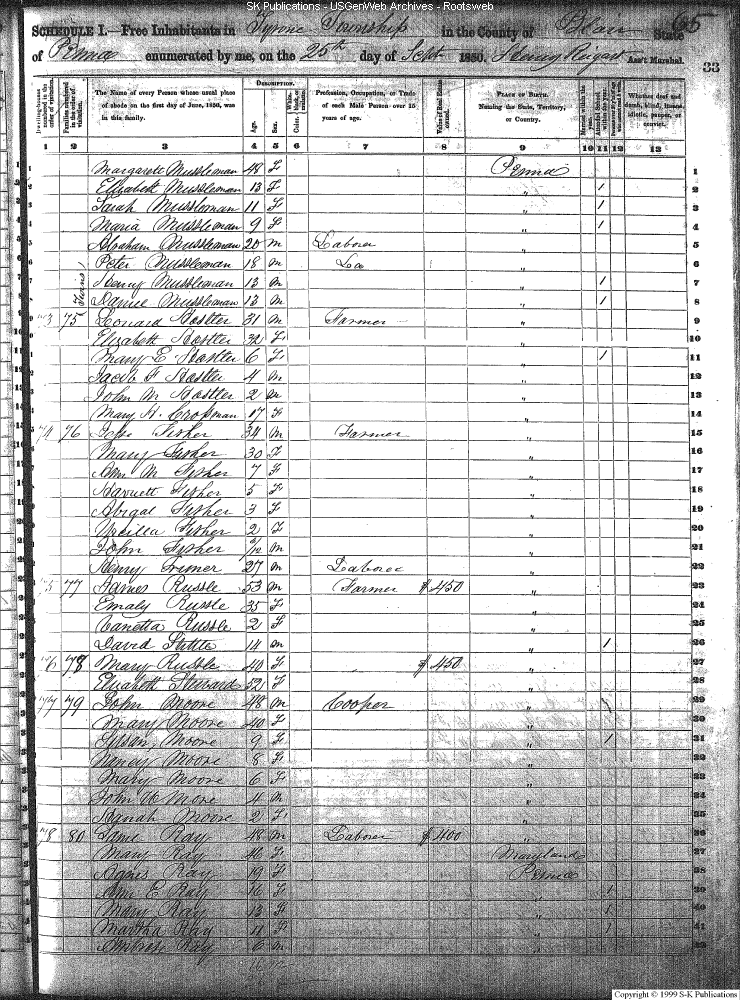 SK Publications - USGenWeb Archives - Rootsweb
65
SCHEDULE I.—Free Inhabitants in Tyrone Township in the County of Blair State
of Penna enumerated by me, on the 25th day of Sept 1850. Ass't Marshal.
33
Dwelling-houses numbered in the order of visitation.
Families numbered in the order of visitation.
The Name of every Person whose usual place of abode on the first day of June, 1850, was in this family.
DESCRIPTION.
Age.
Sex.
Color, White, black, or mulatto.
Profession, Occupation, or Trade of each Male Person over 15 years of age.
Value of Real Estate owned.
PLACE OF BIRTH. Naming the State, Territory, or Country.
Married within the year.
Attended School within the year.
Whether deaf and dumb, blind, insane, idiotic, pauper, or convict.
1 2 3 4 5 6 7 8 9 10 11 12 13
1 Margarett Mussleman 48 F Penna 1
2 Elizabeth Mussleman 13 F " / 2
3 Sarah Mussleman 11 F " / 3
4 Maria Mussleman 9 F " / 4
5 Abraham Mussleman 20 M Laborer " 5
6 Peter Mussleman 18 M Do " 6
7 Henry Mussleman 13 M " / 7
8 Daniel Mussleman 13 M " / 8
73 75 Leonard Hostler 31 M Farmer " 9
Elizabeth Hostler 32 F " 10
Mary E. Hostler 6 F " / 11
Jacob F Hostler 4 M " 12
John M Hostler 2 M " 13
Mary A. Cropman 17 F " 14
74 76 Jesse Fisher 34 M Farmer " 15
Mary Fisher 30 F " 16
Ann M Fisher 7 F " 17
Harriett Fisher 5 F " 18
Abigal Fisher 3 F " 19
Fisher 2 F " 20
John Fisher /12 M " 21
Henry 27 M Laborer " 22
75 77 James Russle 53 M Farmer $450 " 23
Emaly Russle 35 F " 24
Canetta Russle 2 F " 25
David 14 M " / 26
76 78 Mary Russle 40 F $450 " 27
Elizabeth 52 F " 28
77 79 John Moore 48 M Cooper " 29
Mary Moore 40 F " 30
Susan Moore 9 F " / 31
Nancy Moore 8 F " 32
Mary Moore 6 F " 33
John W Moore 4 M " 34
Hanah Moore 2 F " 35
78 80 Ray 48 M Laborer $400 " 36
Mary Ray 46 F Maryland 37
Agnes Ray 19 F Penna 38
Ann E Ray 16 F " / 39
Mary Ray 13 F " / 40
Martha Ray 11 F " / 41
Ambrose Ray 6 M " 42
Copyright © 1999 S-K Publications